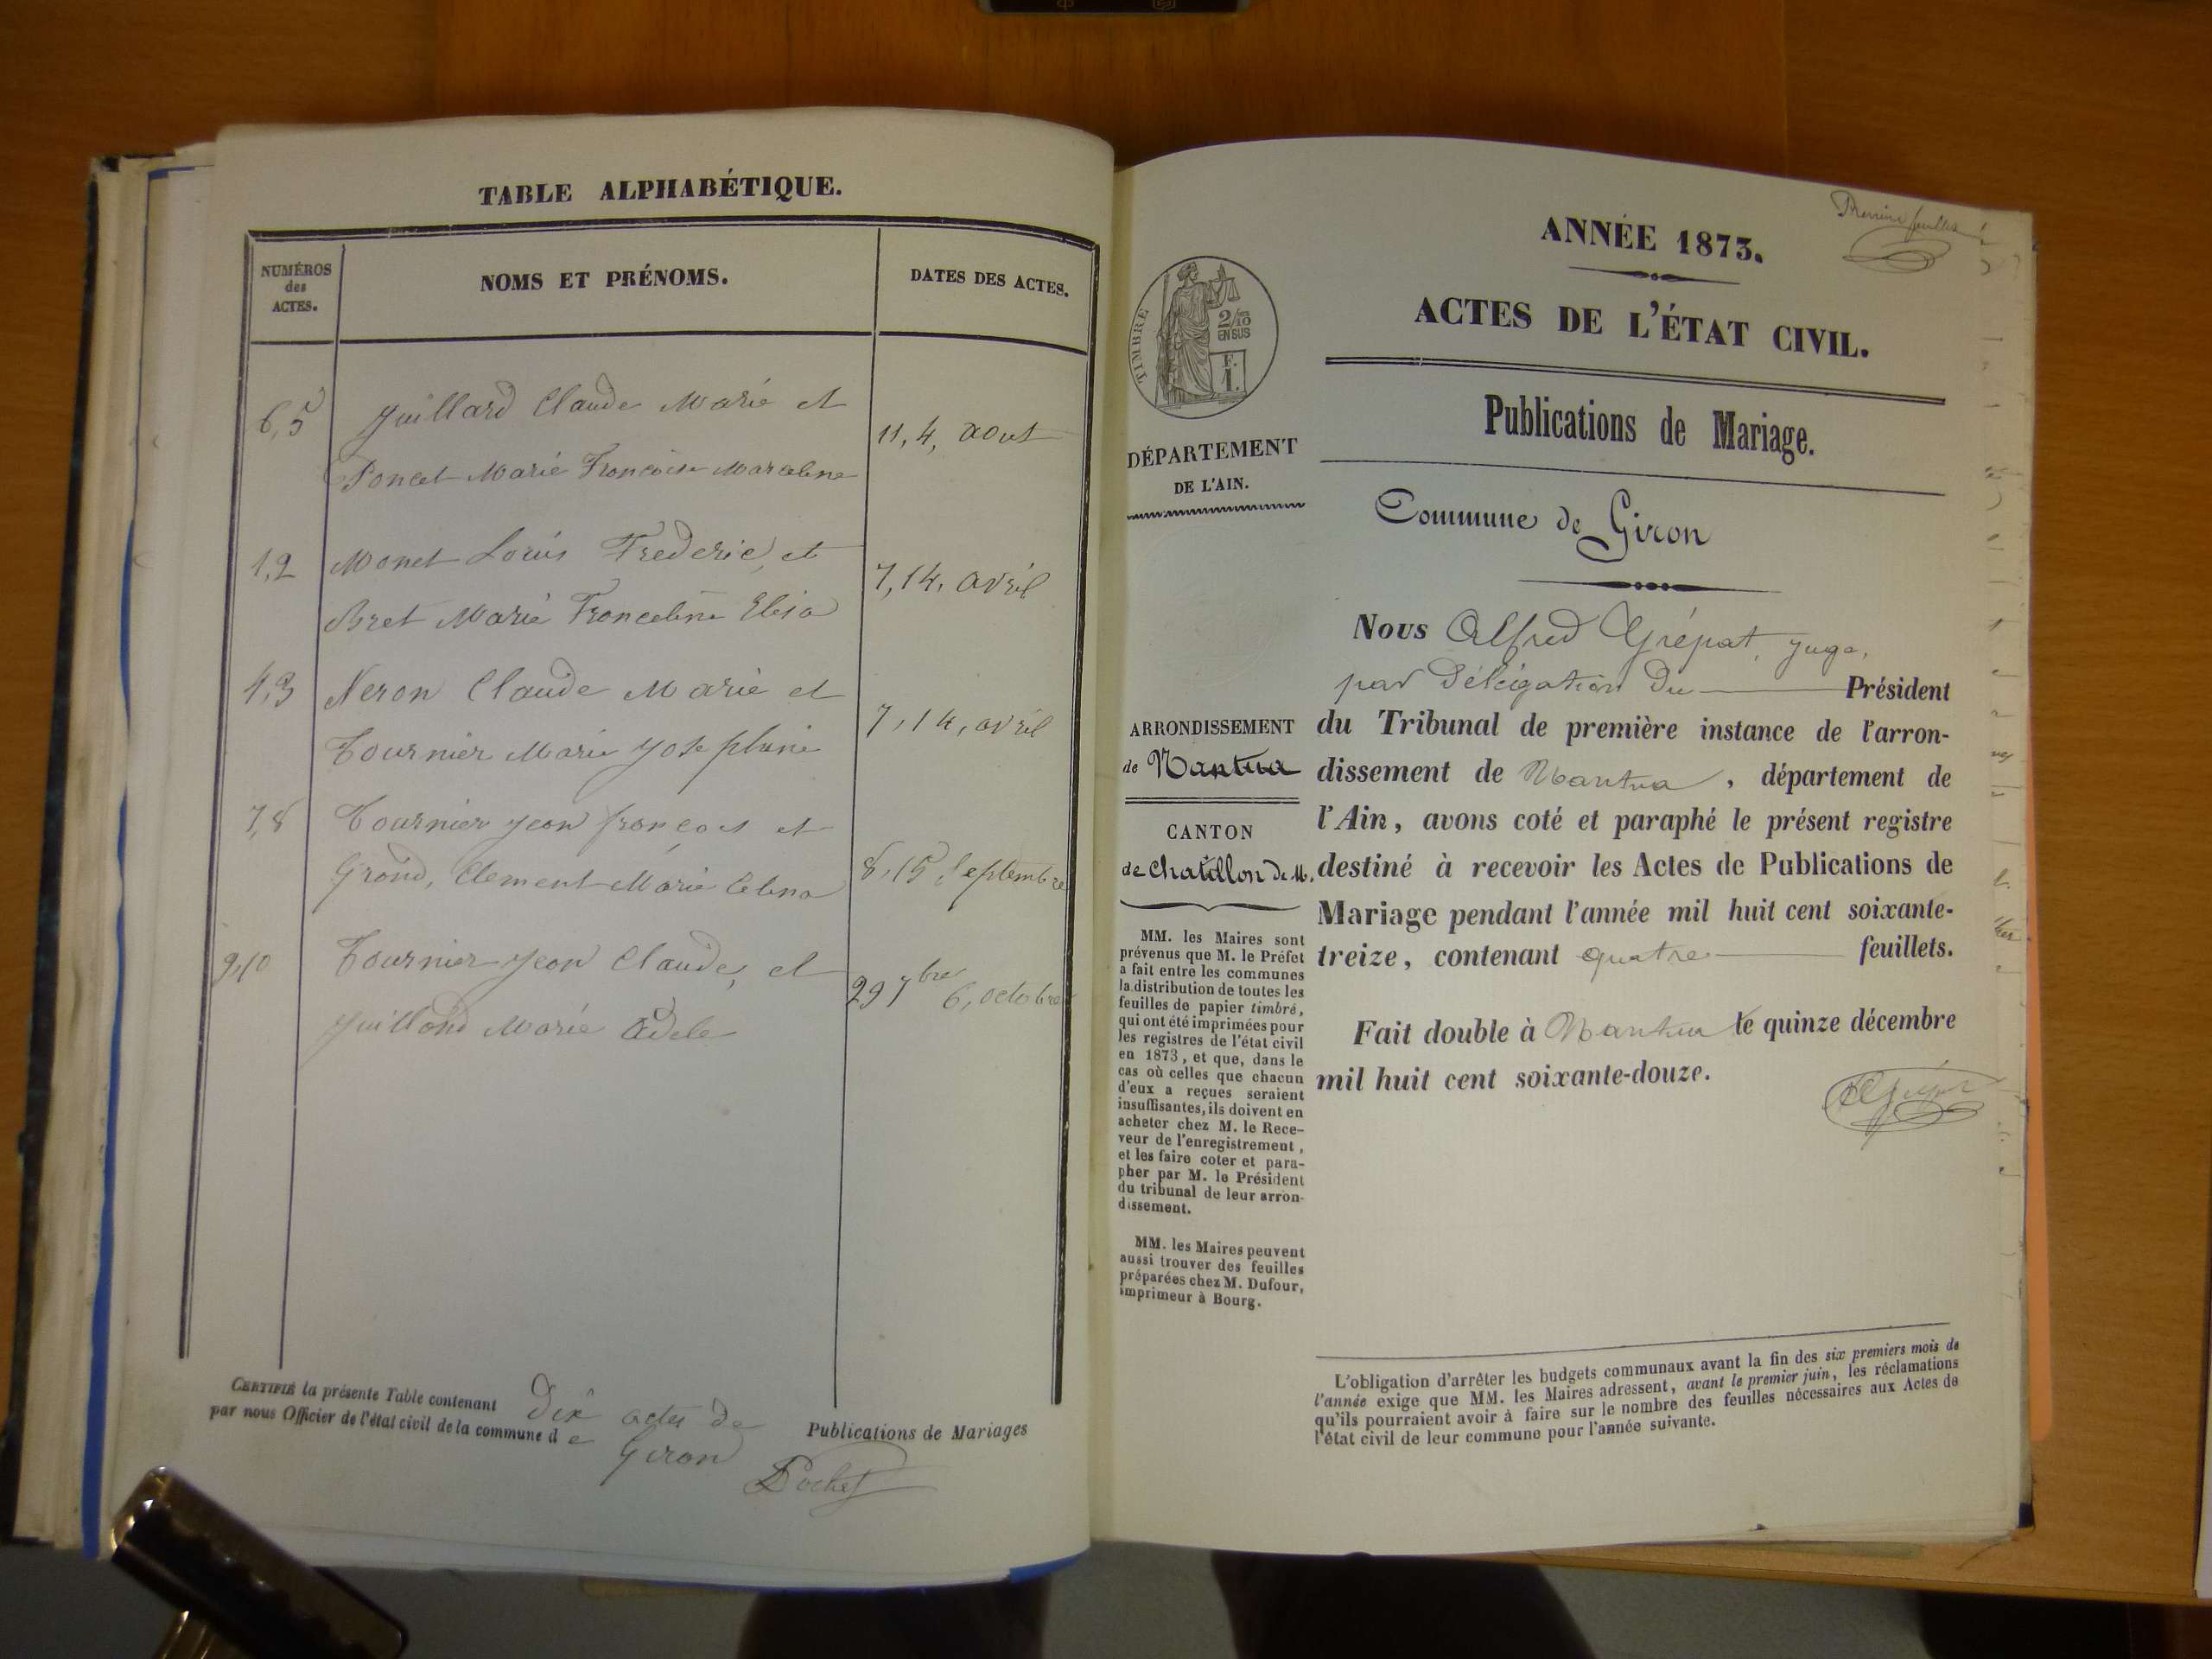 TABLE ALPHABÉTIQUE.
NUMÉROS
des
ACTES.
NOMS ET PRÉNOMS.
DATES DES ACTES.
6,5
Juillard Claude Marie et
Poncet Marie Francoise Marceline
11, 4, aout
1,2
Monet Louis Frederic, et
Bret Marie Franceline Elisa
7, 14, avril
4,3
Neron Claude Marie et
Tournier Marie Josephine
7, 14, avril
7,8
Tournier Jean francois et
Grond, Clement Marie Celina
8, 15 Septembre
9,10
Tournier Jean Claude, et
Juilland Marie Adele
29 7bre 6, octobre
CERTIFIÉ la présente Table contenant Dix actes de Publications de Mariages
par nous Officier de l'état civil de la commune de Giron
Pochet
Premier feuillet
ANNÉE 1873.
ACTES DE L'ÉTAT CIVIL.
TIMBRE
2/10
EN SUS
F.
1.
Publications de Mariage.
DÉPARTEMENT
DE L'AIN.
Commune de Giron
ARRONDISSEMENT
de Nantua
CANTON
de Chatillon de M.
MM. les Maires sont
prévenus que M. le Préfet
a fait entre les communes
la distribution de toutes les
feuilles de papier timbré,
qui ont été imprimées pour
les registres de l'état civil
en 1873, et que, dans le
cas où celles que chacun
d'eux a reçues seraient
insuffisantes, ils doivent en
acheter chez M. le Rece-
veur de l'enregistrement,
et les faire coter et para-
pher par M. le Président
du tribunal de leur arron-
dissement.
MM. les Maires peuvent
aussi trouver des feuilles
préparées chez M. Dufour,
imprimeur à Bourg.
Nous Alfred Grépat, juge,
par Délégation Du Président
du Tribunal de première instance de l'arron-
dissement de Nantua, département de
l'Ain, avons coté et paraphé le présent registre
destiné à recevoir les Actes de Publications de
Mariage pendant l'année mil huit cent soixante-
treize, contenant quatre feuillets.
Fait double à Nantua le quinze décembre
mil huit cent soixante-douze.
L'obligation d'arrêter les budgets communaux avant la fin des six premiers mois de
l'année exige que MM. les Maires adressent, avant le premier juin, les réclamations
qu'ils pourraient avoir à faire sur le nombre des feuilles nécessaires aux Actes de
l'état civil de leur commune pour l'année suivante.